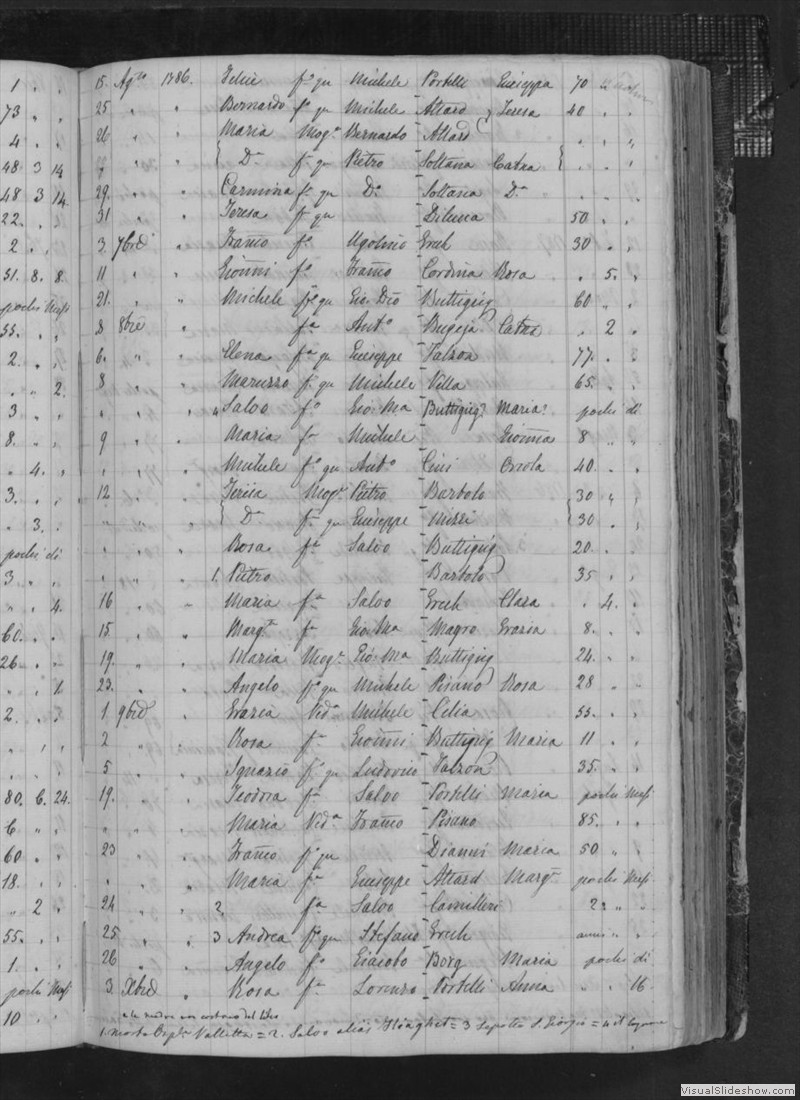 1 " " 15. Agto 1786. Felice fo qu Michele Portelli Giuseppa 70
73 " " 25 " " Bernardo fo qu Michele Attard Teresa 40 " "
4 " " 26 " " Maria Moge Bernardo Attard " " "
48 3 14 " " " Da fa qu Pietro Soltana Catra " " "
48 3 14. 29. " " Carmina fa qu Do Soltana Da
22. " " 31 " " Teresa fa qu Diluna 50 " "
2 " " 3. 7bre " fo Ugolino Grech 30 " "
51. 8. 8. 11 " " Gionni fo Cordina Rosa " 5. "
pochi Mesi 21. " " Michele fo qu Gio. Dio Buttigig 60 " "
55. " " 8 8bre " fa Anto Bugeja Catra " 2 "
2. " " 6. " " Elena fa qu Giuseppe Falzon 77. " "
" " 2. 8 " " Maruzzo fo qu Michele Villa 65. " "
3 " " " " " 4 Salvo fo Gio: Ma Buttigig Maria pochi di
8. " " 9 " " Maria fa Michele Gionna 8 " "
" 4. " " " " Michele fo qu Anto Cini Orsola 40. " "
3. " " 12 " " Teresa Moge Pietro Bartolo 30 " "
" 3. " " " " Da fa qu Giuseppe Mizzi 30 " "
pochi di " " " Rosa fa Salvo Buttigig 20. " "
3 " " " " " 1. Pietro Bartolo 35 " "
" " 4. 16 " " Maria fa Salvo Grech Clara " 4. "
60. " " 15. " " Margta fa Gio: Ma Magro Grazia 8. " "
26 " " 19. " " Maria Moge Gio: Ma Buttigig 24. " "
" " 1. 23. " " Angelo fo qu Michele Pisano Rosa 28 " "
2. " " 1. 9bre " Grazia Vida Michele Celia 55. " "
" " " 2 " " Rosa fa Gionni Buttigig Maria 11 " "
" " " 5 " " Ignazio fo qu Ludovico Falzon 35. " "
80. 6. 24. 19. " " Teodora fa Salvo Portelli Maria pochi Mesi
6 " " " " " Maria Vida Pisano 85. " "
60 " " 23 " " fo qu Dianni Maria 50 " "
18. " " " " " Maria fa Giuseppe Attard Margta pochi Mesi
" 2 " 24 " " 2, fa Salvo Camilleri 2 " "
55. " " 25 " " 3 Andrea fo qu Stefano Grech anni " "
1. " " 26 " " Angelo fo Giacobo Borg Maria pochi di
pochi Mesi 3. Xbre " Rosa fa Lorenzo Portelli Anna " " 16
10 " "
e la madre non
1. morto Valletta = 2. Salvo alias = 3 Sepolto S. Giorgio = 4 il
VisualSlideshow.com